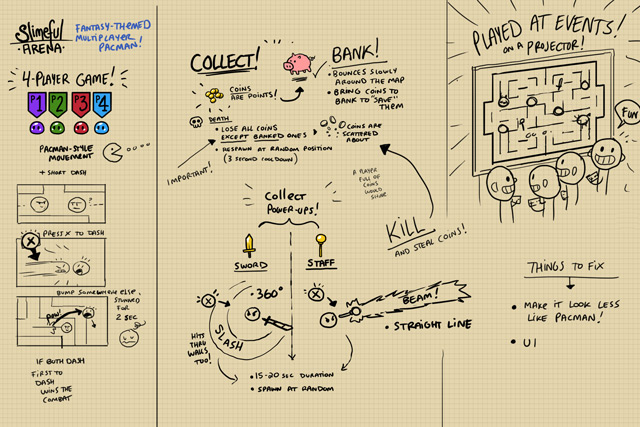 Slimeful
ARENA
FANTASY-THEMED
MULTIPLAYER
PACMAN!
4-PLAYER GAME!
P1 P2 P3 P4
PACMAN-STYLE
MOVEMENT
+ SHORT DASH
X PRESS X TO DASH
BUMP SOMEWHERE ELSE,
STUNNED
FOR
2 SEC
IF BOTH DASH
FIRST TO
DASH
WINS THE
COMBAT
COLLECT!
COINS
ARE POINTS!
BANK!
• BOUNCES SLOWLY
AROUND THE MAP
• BRING COINS TO
BANK TO "SAVE"
THEM
DEATH
• LOSE ALL COINS
EXCEPT BANKED ONES
• RESPAWN AT RANDOM POSITION
(3 SECOND COOLDOWN)
COINS ARE
SCATTERED
ABOUT
IMPORTANT!
A PLAYER
FULL OF
COINS
WOULD
KILL
AND STEAL COINS!
COLLECT
POWER-UPS!
SWORD
STAFF
X
360°
SLASH
HITS
THRU
WALLS
TOO!
X
BEAM!
• STRAIGHT LINE
• 15-20 SEC DURATION
• SPAWN AT RANDOM
PLAYED AT EVENTS!
ON A PROJECTOR!
FUN
THINGS TO FIX
• MAKE IT LOOK LESS
LIKE PACMAN!
• UI